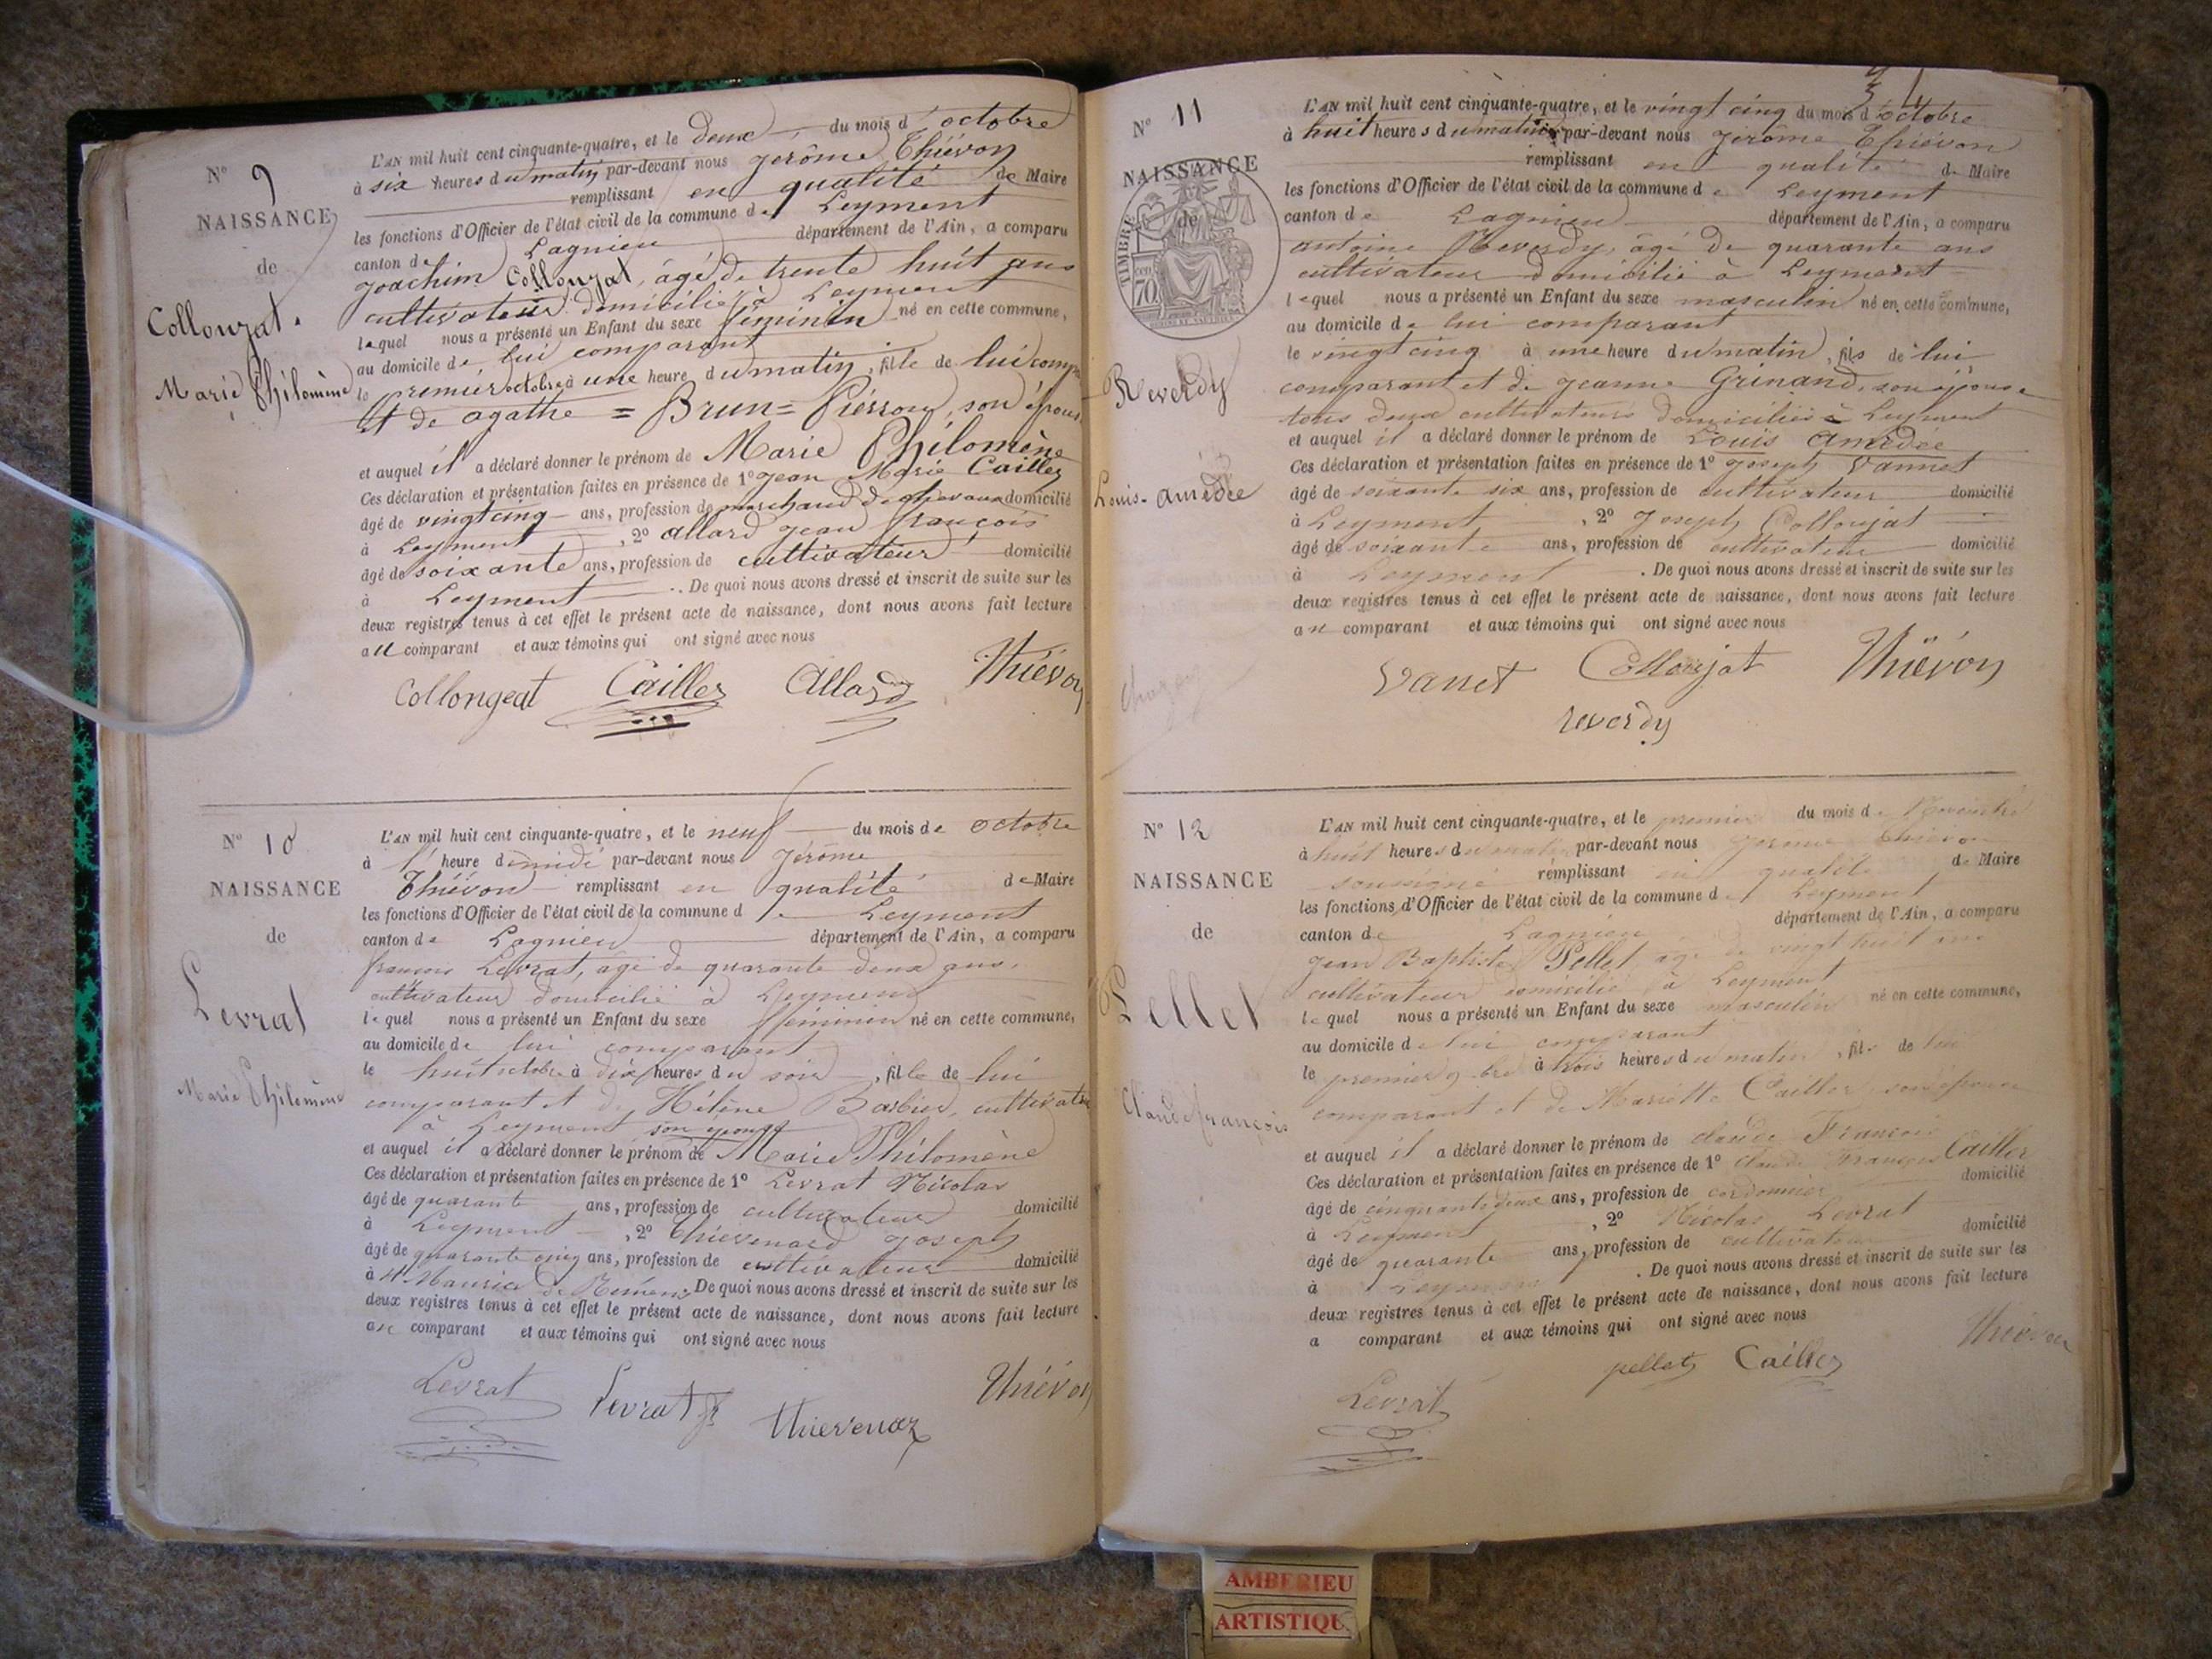 N° 9
NAISSANCE
de
Collonzat.
Marie Philomène
L'AN mil huit cent cinquante-quatre, et le deux du mois d'octobre
à six heures du matin par-devant nous jerôme Thiévon
remplissant en qualité de Maire
les fonctions d'Officier de l'état civil de la commune de Leyment
canton de Lagnieu département de l'Ain, a comparu
joachim Collonjat, âgé de trente huit ans
cultivateur domicilié à Leyment
lequel nous a présenté un Enfant du sexe féminin né en cette commune,
au domicile de lui comparant
le premier octobre à une heure du matin, fille de lui comp
et de agathe = Brun = Piérron, son épouse
et auquel il a déclaré donner le prénom de Marie Philomène
Ces déclaration et présentation faites en présence de 1° jean Marie Caillez
âgé de vingt cinq ans, profession de marchand de chevaux domicilié
à Leyment, 2° allard jean françois
âgé de soixante ans, profession de cultivateur domicilié
à Leyment. De quoi nous avons dressé et inscrit de suite sur les
deux registres tenus à cet effet le présent acte de naissance, dont nous avons fait lecture
au comparant et aux témoins qui ont signé avec nous
Collongeat Cailler Allard Thiévon
N° 10
NAISSANCE
de
Levrat
Marie Philomène
L'AN mil huit cent cinquante-quatre, et le neuf du mois de octobre
à l' heure de midi par-devant nous jérôme
Thiévon remplissant en qualité de Maire
les fonctions d'Officier de l'état civil de la commune de Leyment
canton de Lagnieu département de l'Ain, a comparu
françois Levrat, âgé de quarante deux ans,
cultivateur domicilié à Leyment
lequel nous a présenté un Enfant du sexe féminin né en cette commune,
au domicile de lui comparant
le huit octobre à dix heures du soir, fille de lui
comparant et de Hélène Barbier, cultivatr
à Leyment son épouse
et auquel il a déclaré donner le prénom de Marie Philomène
Ces déclaration et présentation faites en présence de 1° Levrat Nicolas
âgé de quarante ans, profession de cultivateur domicilié
à Leyment, 2° Thiévenard joseph
âgé de quarante cinq ans, profession de cultivateur domicilié
à St Maurice de Rémens. De quoi nous avons dressé et inscrit de suite sur les
deux registres tenus à cet effet le présent acte de naissance, dont nous avons fait lecture
au comparant et aux témoins qui ont signé avec nous
Levrat Levrat Thiévenaz Thiévon
N° 11
NAISSANCE
de
TIMBRE
70
Reverdy
Louis-amédée
L'AN mil huit cent cinquante-quatre, et le vingt cinq du mois d'octobre
à huit heures du matin par-devant nous jérôme Thiévon
remplissant en qualité de Maire
les fonctions d'Officier de l'état civil de la commune de Leyment
canton de Lagnieu département de l'Ain, a comparu
antoine Reverdy, âgé de quarante ans
cultivateur domicilié à Leyment
lequel nous a présenté un Enfant du sexe masculin né en cette commune,
au domicile de lui comparant
le vingt cinq à une heure du matin, fils de lui
comparant et de jeanne Grinand, son épouse
tous deux cultivateurs domiciliés à Leyment
et auquel il a déclaré donner le prénom de Louis amédée
Ces déclaration et présentation faites en présence de 1° joseph Vannet
âgé de soixante six ans, profession de cultivateur domicilié
à Leyment, 2° joseph Collonjat
âgé de soixante ans, profession de cultivateur domicilié
à Leyment. De quoi nous avons dressé et inscrit de suite sur les
deux registres tenus à cet effet le présent acte de naissance, dont nous avons fait lecture
au comparant et aux témoins qui ont signé avec nous
Vannet Collonjat Thiévon
reverdy
N° 12
NAISSANCE
de
Pellet
Claude françois
L'AN mil huit cent cinquante-quatre, et le premier du mois de Novembre
à huit heures du matin par-devant nous jerome Thiévon
soussigné remplissant en qualité de Maire
les fonctions d'Officier de l'état civil de la commune de Leyment
canton de Lagnieu département de l'Ain, a comparu
jean Baptiste Pellet âgé de vingt huit ans
cultivateur domicilié à Leyment
lequel nous a présenté un Enfant du sexe masculin né en cette commune,
au domicile de lui comparant
le premier 9bre à trois heures du matin, fils de lui
comparant et de Mariette Cailler son épouse
et auquel il a déclaré donner le prénom de claude François
Ces déclaration et présentation faites en présence de 1° claude François Cailler
âgé de cinquante deux ans, profession de cordonnier domicilié
à Leyment, 2° Nicolas Levrat
âgé de quarante ans, profession de cultivateur domicilié
à Leyment. De quoi nous avons dressé et inscrit de suite sur les
deux registres tenus à cet effet le présent acte de naissance, dont nous avons fait lecture
a comparant et aux témoins qui ont signé avec nous
pellet Cailler Thiévon
Levrat
AMBERIEU
ARTISTIQUE